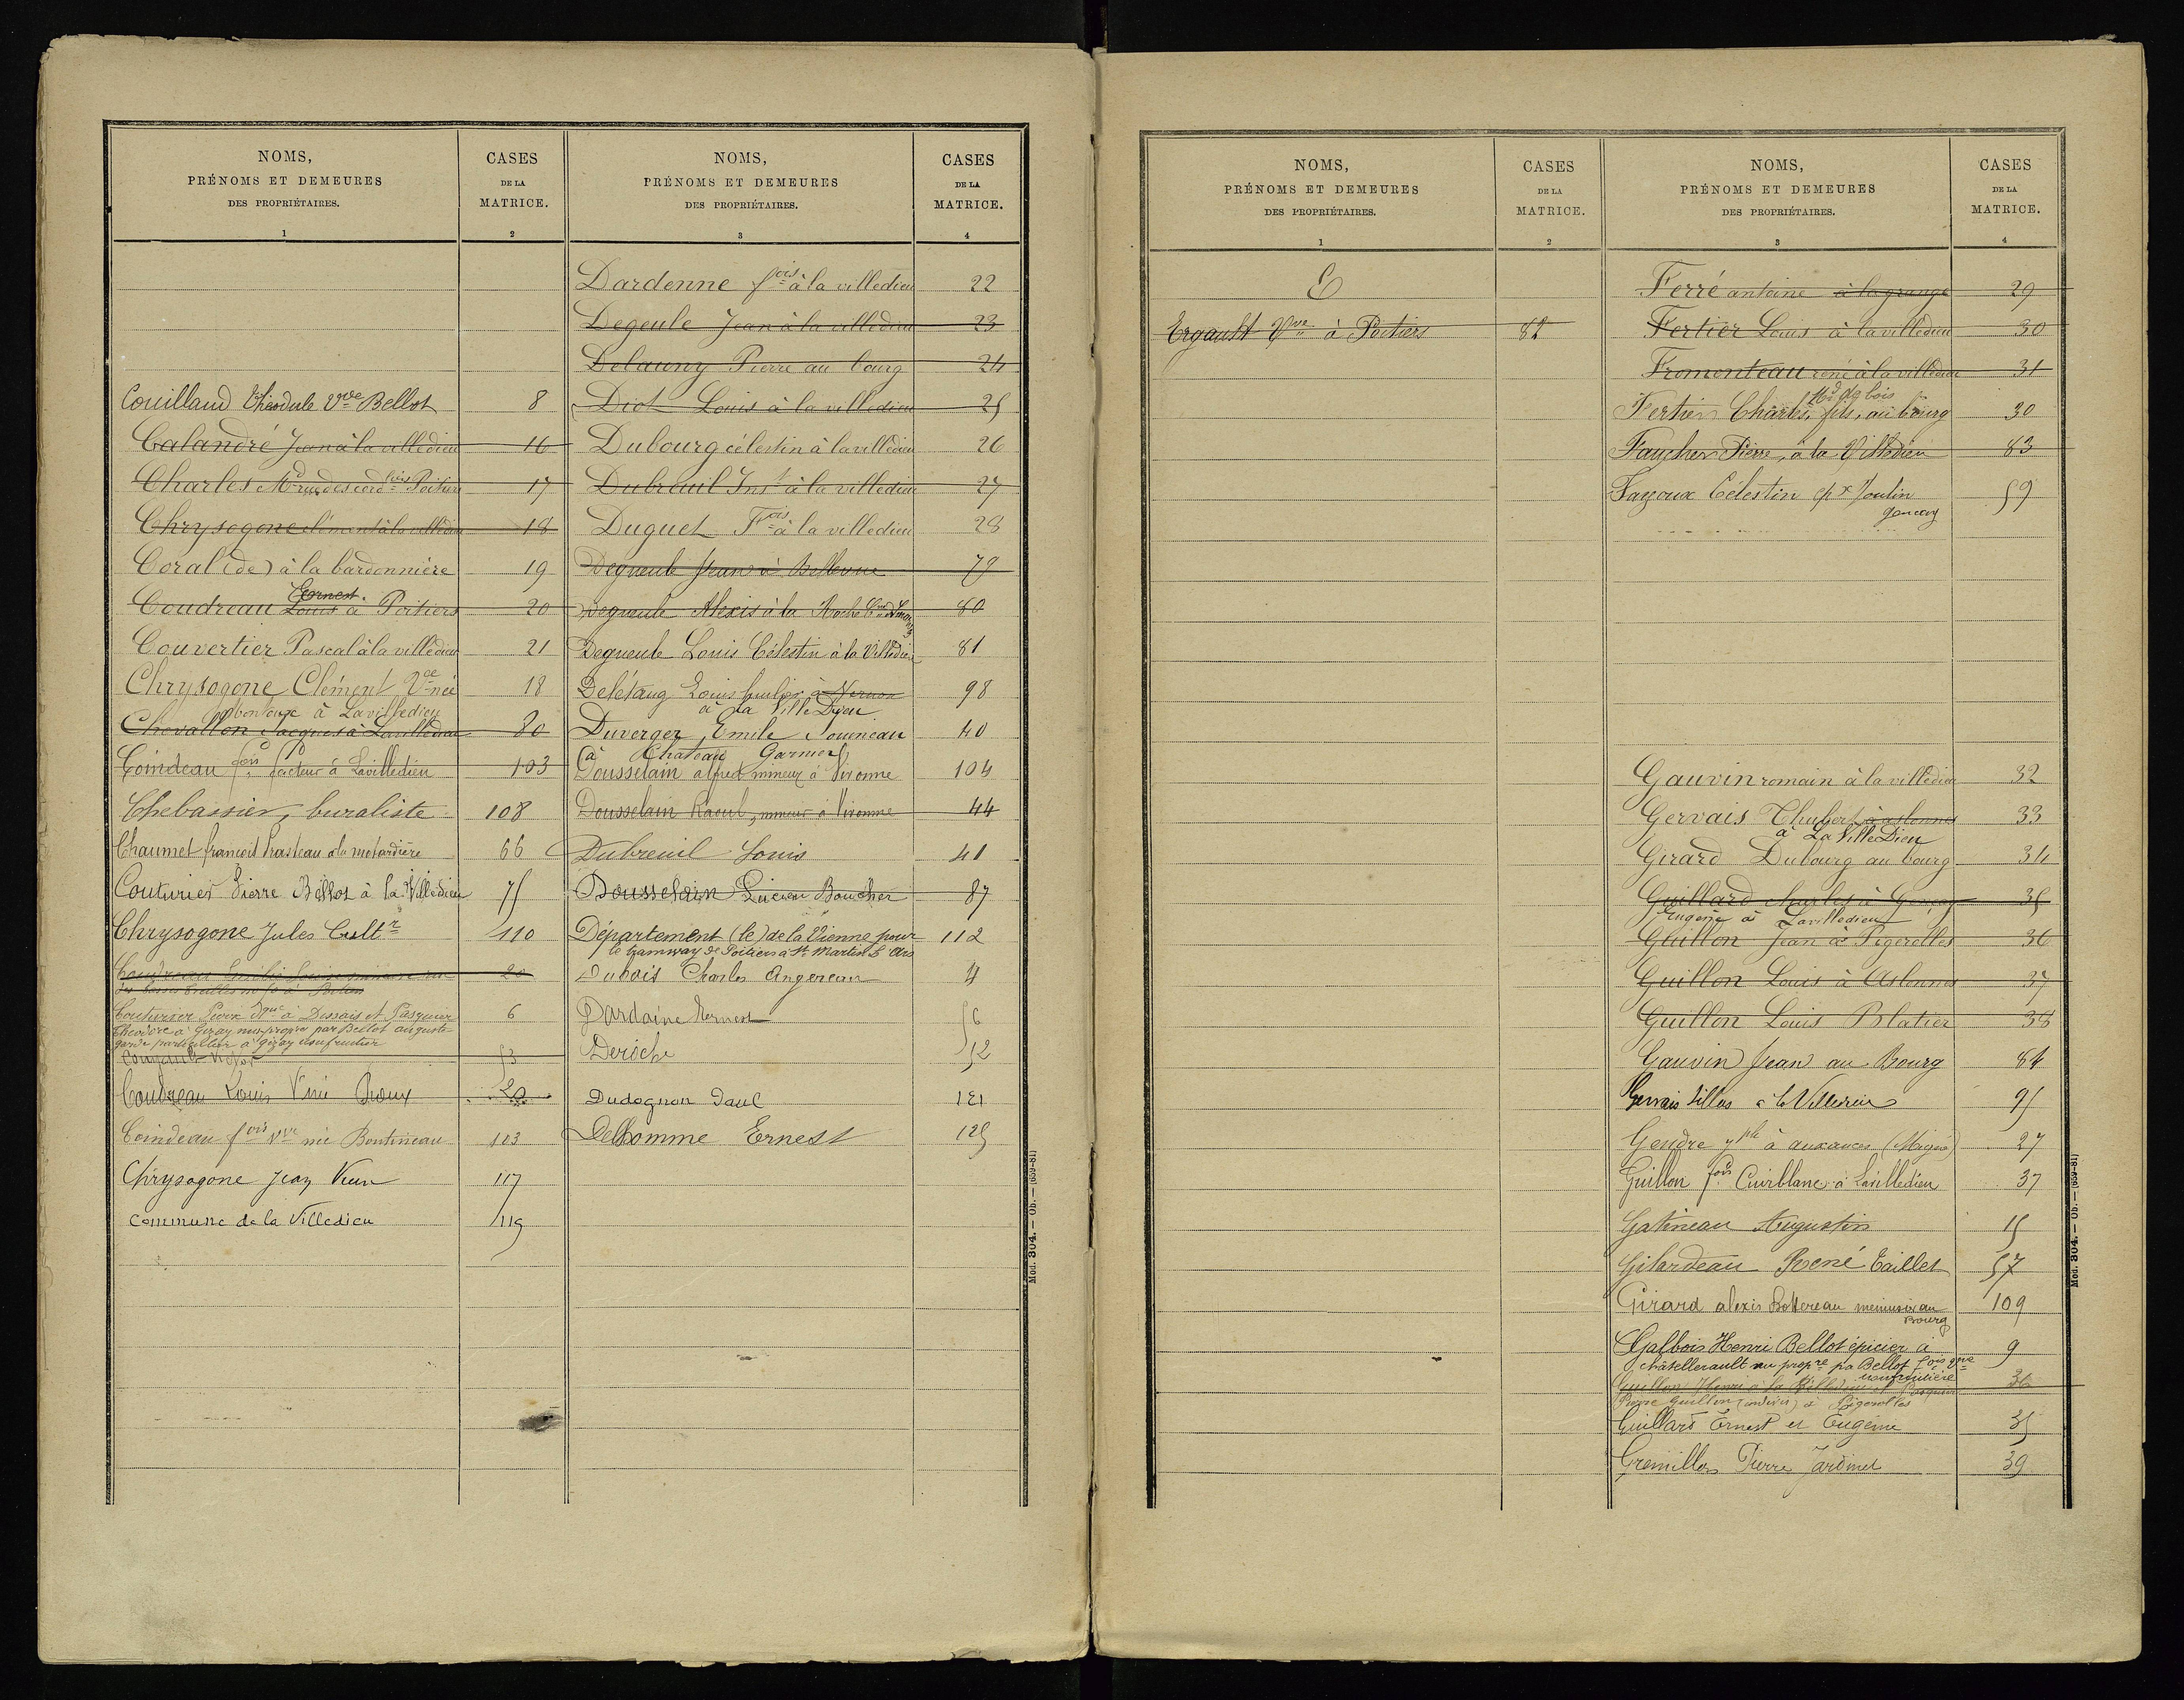 NOMS,
PRÉNOMS ET DEMEURES
DES PROPRIÉTAIRES.
1
CASES
DE LA
MATRICE.
2
Couilland Théodule Vve Bellot 8
Calandré Jean à la villedieu 16
Charles Md rue des cord Poitiers 17
Chrysogone clément à la villedieu 18
Coral (de) à la bardonnière 19
Ernest
Coudreau Louis à Poitiers 20
Couvertier Pascal à la villedieu 21
Chrysogone Clément Vve née 18
à Lavilledieu
Chevallon Jacques à Lavilledieu 80
Coindeau fois facteur à Lavilledieu 103
Chebassier, buraliste 108
Chaumet françois Prasteau à la motardière 66
Couturier Pierre Bellot à la Villedieu 75
Chrysogone Jules Cultr 110
Coudreau 20
Couturier à Dissais et Pasquier 6
Théodore à Gizay nu-propre par Bellot auguste
garde particulier à gizay usufruitier
53
Coudreau Louis Vve née Proux 20
Coindeau fois Vve née Boutineau 103
Chrysogone Jean 117
Commune de la Villedieu 119
NOMS,
PRÉNOMS ET DEMEURES
DES PROPRIÉTAIRES.
3
CASES
DE LA
MATRICE.
4
Dardenne fois à la villedieu 22
Degeule Jean à la villedieu 23
Delauny Pierre au bourg 24
Diot Louis à la villedieu 25
Dubourg célestin à la villedieu 26
Dubreuil Inst à la villedieu 27
Duguet Fois à la villedieu 28
Degueule Jean à Bellevue 79
Degueule Alexis à la Roche 80
Degueule Louis Célestin à la Villedieu 81
Delétang Louis huilier à Vernon 98
à La Ville Dieu
Duverger Emile Jouineau 40
à Chateau Garnier
Dousselain alfred mineur à Vivonne 104
Dousselain Raoul, mineur à Vivonne 44
Dubreuil Louis 41
Dousselain Lucien Boucher 87
Département (le) de la Vienne pour 112
le tramway de Poitiers à St Martin L'Ars
Dubois Charles Angereau 4
Dardaine Ernest 56
Deroche 52
Dudognon Paul 121
Delhomme Ernest 125
Mod. 304. — Ob. — (659-81)
NOMS,
PRÉNOMS ET DEMEURES
DES PROPRIÉTAIRES.
1
CASES
DE LA
MATRICE.
2
E
Ergault Vve à Poitiers 82
NOMS,
PRÉNOMS ET DEMEURES
DES PROPRIÉTAIRES.
3
CASES
DE LA
MATRICE.
4
Ferré antoine à la grange 29
Fertier Louis à la villedieu 30
Fromenteau réné à la villedieu 31
Md de bois
Fertier Charles, fils, au bourg 30
Faucher Pierre, à la Villedieu 83
Fazoux Célestin epx Joulin 59
Gencay
Gauvin romain à la villedieu 32
Gervais Thubert à aslonnes 33
à La Ville Dieu
Girard Dubourg au bourg 34
Guillard charles à Gençay 35
Eugène à Lavilledieu
Guillon Jean à Pigerolles 36
Guillon Louis à Aslonnes 37
Guillon Louis Blatier 38
Gauvin Jean au Bourg 84
Gervais Sillas à la Villedieu 95
Gendre à auxances (Migné) 27
Guillon fois Cuirblanc à Lavilledieu 37
Gatineau Augustin 15
Gilardeau René Taillet 57
Girard alexis Bottereau menuisier au 109
Bourg
Galbois Henri Bellot épicier à 9
châtellerault nu propre pa Bellot fois Vve
usufruitière
Guillon Henri à la Villedieu et Pasquier 36
Pierre Guillon (indivis) à Pigerolles
Guillard Ernest et Eugénie 35
Gremillon Pierre Jardinet 39
Mod. 304. — Ob. — (659-81)